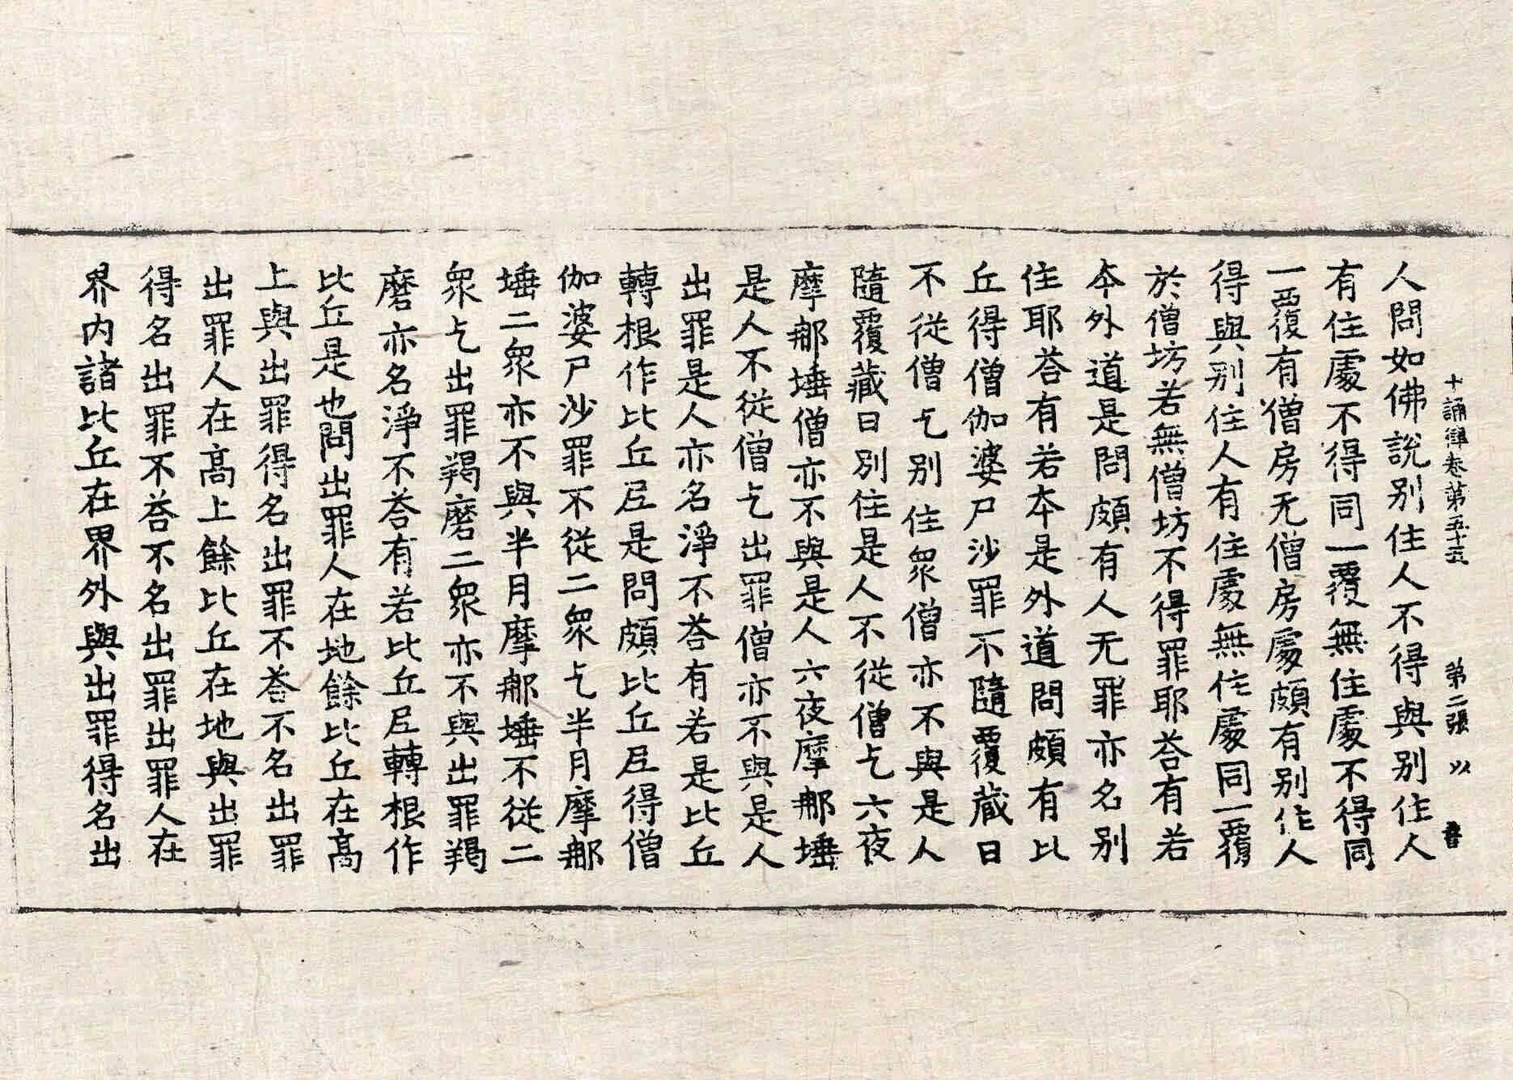 十誦律卷第五十五　第二張　以　書
人問如佛說別住人不得與別住人
有住處不得同一覆無住處不得同
一覆有僧房无僧房處頗有別住人
得與別住人有住處無住處同一覆
於僧坊若無僧坊不得罪耶荅有若
本外道是問頗有人无罪亦名別
住耶荅有若本是外道問頗有比
丘得僧伽婆尸沙罪不隨覆藏日
不從僧乞別住衆僧亦不與是人
隨覆藏日別住是人不從僧乞六夜
摩那埵僧亦不與是人六夜摩那埵
是人不從僧乞出罪僧亦不與是人
出罪是人亦名淨不荅有若是比丘
轉根作比丘尼是問頗比丘尼得僧
伽婆尸沙罪不從二衆乞半月摩那
埵二衆亦不與半月摩那埵不從二
衆乞出罪羯磨二衆亦不與出罪羯
磨亦名淨不荅有若比丘尼轉根作
比丘是也問出罪人在地餘比丘在高
上與出罪得名出罪不荅不名出罪
出罪人在高上餘比丘在地與出罪
得名出罪不荅不名出罪出罪人在
界内諸比丘在界外與出罪得名出